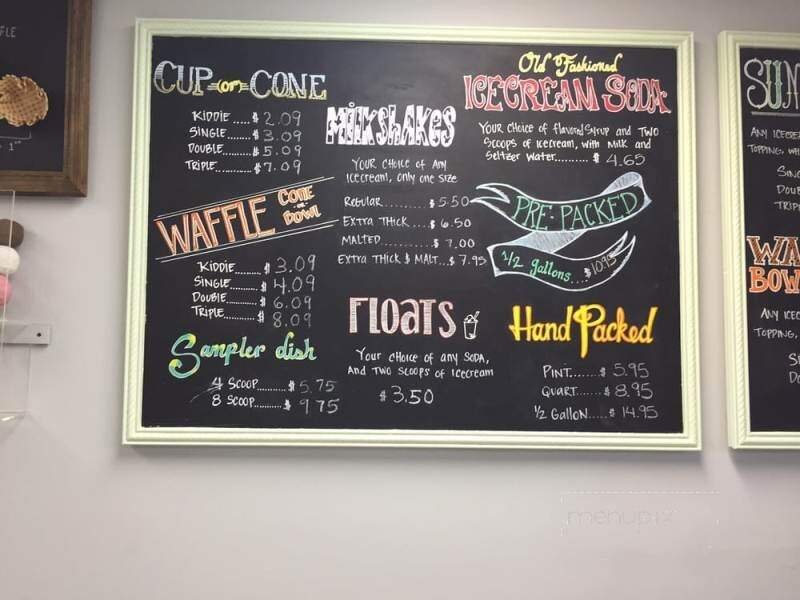 FLE
1"
CUP or CONE
KIDDIE ..... $ 2.09
SINGLE ..... $ 3.09
DOUBLE ..... $ 5.09
TRIPLE ..... $ 7.09
WAFFLE CONE or BOWL
KIDDIE ..... $ 3.09
SINGLE ..... $ 4.09
DOUBLE ..... $ 6.09
TRIPLE ..... $ 8.09
Sampler dish
4 SCOOP ..... $ 5.75
8 SCOOP ..... $ 9.75
MILKSHAKES
YOUR CHOICE OF ANY
ICECREAM, ONLY ONE SIZE
REGULAR ..... $ 5.50
EXTRA THICK .... $ 6.50
MALTED ..... $ 7.00
EXTRA THICK & MALT... $ 7.95
FLOATS
YOUR CHOICE OF ANY SODA,
AND TWO SCOOPS OF ICECREAM
$3.50
Old Fashioned
ICECREAM SODA
YOUR CHOICE OF flavored Syrup AND TWO
SCOOPS OF ICECREAM, WITH MILK AND
SELTZER WATER......... $ 4.65
PRE-PACKED
1/2 gallons.... $10.95
Hand Packed
PINT....... $ 5.95
QUART...... $ 8.95
1/2 GALLON..... $ 14.95
SUN
ANY ICECRE
TOPPING, WH
SING
DOUB
TRIP
WA
BOW
ANY ICEC
TOPPING,
S
DO
menupix